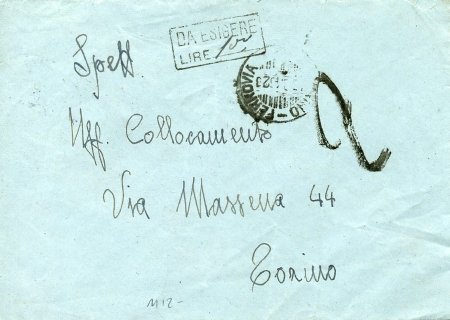 DA ESIGERE
LIRE 100
Spett.
Uff. Collocamento
Via Massena 44
Torino
FERROVIA